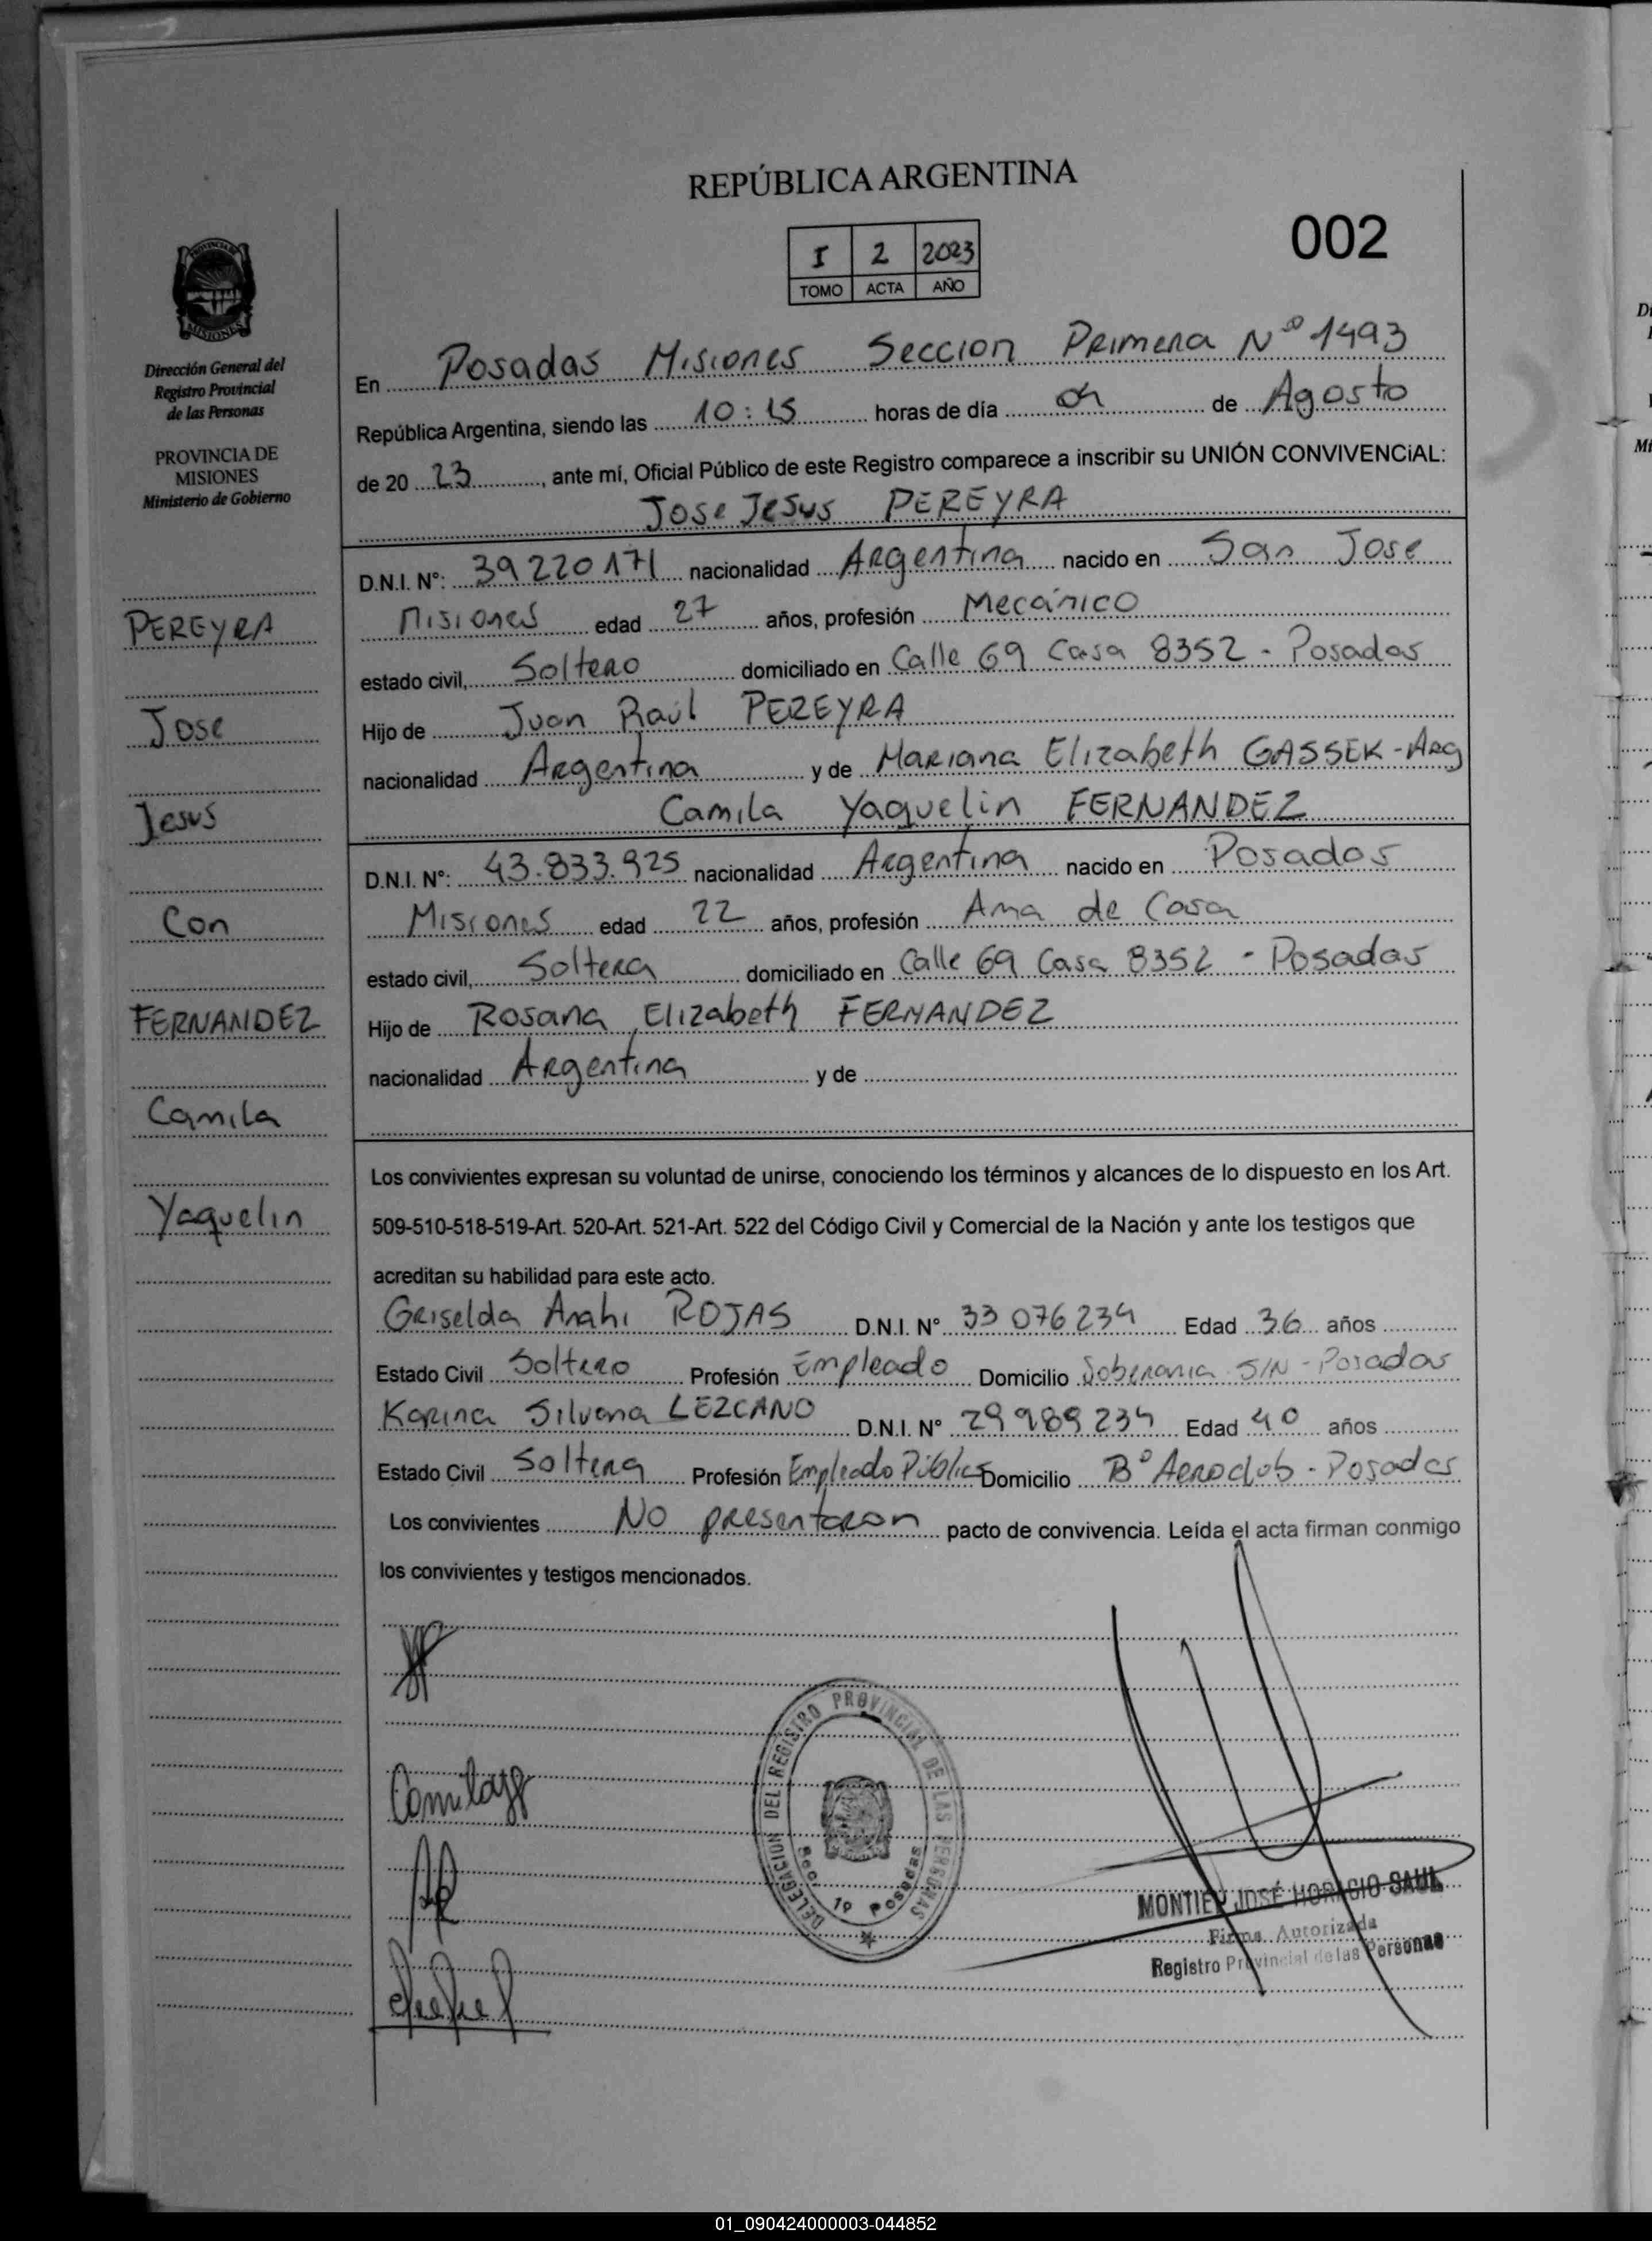 REPÚBLICA ARGENTINA
002
I 2 2023
TOMO ACTA AÑO
PROVINCIA DE
MISIONES
Dirección General del
Registro Provincial
de las Personas
PROVINCIA DE
MISIONES
Ministerio de Gobierno
PEREYRA
Jose
Jesus
Con
FERNANDEZ
Camila
Yaquelin
En Posadas Misiones Seccion Primera Nº 1493
República Argentina, siendo las 10:15 horas de día de Agosto
de 20 23, ante mí, Oficial Público de este Registro comparece a inscribir su UNIÓN CONVIVENCiAL:
Jose Jesus PEREYRA
D.N.I. Nº: 39220171 nacionalidad Argentina nacido en San Jose
Misiones edad 27 años, profesión Mecánico
estado civil, Soltero domiciliado en Calle 69 Casa 8352 - Posadas
Hijo de Juan Raúl PEREYRA
nacionalidad Argentina y de Mariana Elizabeth GASSEK - Arg
Camila Yaquelin FERNANDEZ
D.N.I. Nº: 43.833.925 nacionalidad Argentina nacido en Posadas
Misiones edad 22 años, profesión Ama de Casa
estado civil, Soltera domiciliado en Calle 69 Casa 8352 - Posadas
Hijo de Rosana Elizabeth FERNANDEZ
nacionalidad Argentina y de
Los convivientes expresan su voluntad de unirse, conociendo los términos y alcances de lo dispuesto en los Art.
509-510-518-519-Art. 520-Art. 521-Art. 522 del Código Civil y Comercial de la Nación y ante los testigos que
acreditan su habilidad para este acto.
Griselda Anahi ROJAS D.N.I. Nº 33 076 234 Edad 36 años
Estado Civil Soltero Profesión Empleado Domicilio Soberania S/N - Posadas
Karina Silvana LEZCANO D.N.I. Nº 29 989 234 Edad 40 años
Estado Civil Soltera Profesión Empleado Público Domicilio Bº Aeroclub - Posadas
Los convivientes No presentaron pacto de convivencia. Leída el acta firman conmigo
los convivientes y testigos mencionados.
DELEGACION DEL REGISTRO PROVINCIAL DE LAS PERSONAS
Sec. 1º Posadas
MONTIEL JOSÉ HORACIO SAUL
Firma Autorizada
Registro Provincial de las Personas
01_090424000003-044852